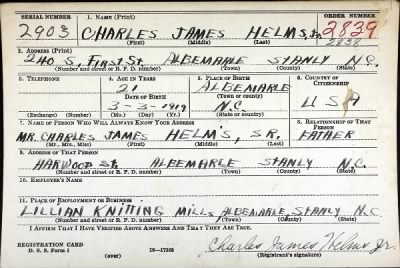 SERIAL NUMBER 1. NAME (Print) ORDER NUMBER
2903 CHARLES JAMES HELMS, Jr. 2829
(First) (Middle) (Last) 2838
2. ADDRESS (Print)
240 S. FIRST ST. ALBEMARLE STANLY N.C.
(Number and street or R. F. D. number) (Town) (County) (State)
3. TELEPHONE 4. AGE IN YEARS 5. PLACE OF BIRTH 6. COUNTRY OF CITIZENSHIP
21 ALBEMARLE
DATE OF BIRTH (Town or county)
3-3-1919 N.C. USA
(Exchange) (Number) (Mo.) (Day) (Yr.) (State or country)
7. NAME OF PERSON WHO WILL ALWAYS KNOW YOUR ADDRESS 8. RELATIONSHIP OF THAT PERSON
MR. CHARLES JAMES HELM'S, SR. FATHER
(Mr., Mrs., Miss) (First) (Middle) (Last)
9. ADDRESS OF THAT PERSON
HARWOOD ST. ALBEMARLE STANLY N.C.
(Number and street or R. F. D. number) (Town) (County) (State)
10. EMPLOYER'S NAME
11. PLACE OF EMPLOYMENT OR BUSINESS
LILLIAN KNITTING MILLS, ALBEMARLE, STANLY N.C
(Number and street or R. F. D. number) (Town) (County) (State)
I AFFIRM THAT I HAVE VERIFIED ABOVE ANSWERS AND THAT THEY ARE TRUE.
REGISTRATION CARD
D. S. S. Form 1 16-17105 Charles James Helms Jr.
(over) (Registrant's signature)